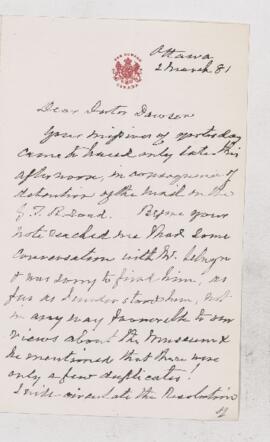 Ottawa
2 March 81
Dear Doctor Dawson
Your missive of yesterday
came to hand only late this
afternoon, in consequence of
detention of the mail on the
G. T. R. road. Before your
note reached me I had some
conversation with Mr. Selwyn
& was sorry to find him, as
far as I understand him, not
in any way favorable to our
views about the Museum &
he mentioned that there were
only a few duplicates!
I will circulate the Resolution